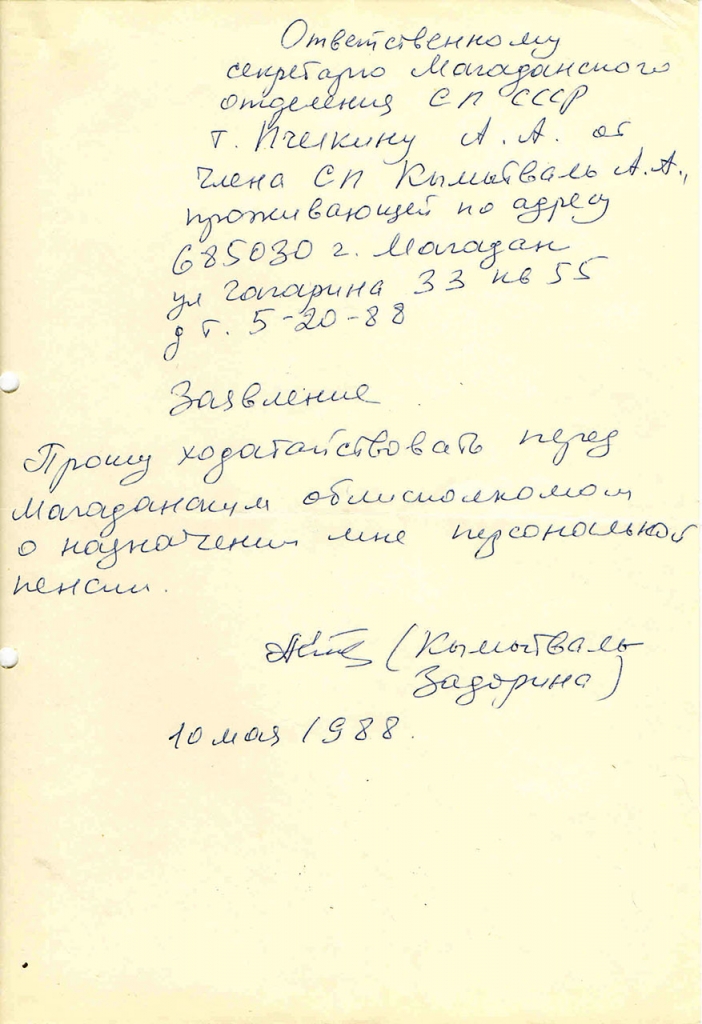 Ответственному
секретарю Магаданского
отделения СП СССР
т. Пчелкину А. А. от
члена СП Кымытваль А.А.,
проживающей по адресу
685030 г. Магадан
ул Гагарина 33 кв 55
д т. 5-20-88
Заявление
Прошу ходатайствовать перед
Магаданским облисполкомом
о назначении мне персональной
пенсии.
(Кымытваль
Задорина)
10 мая 1988.